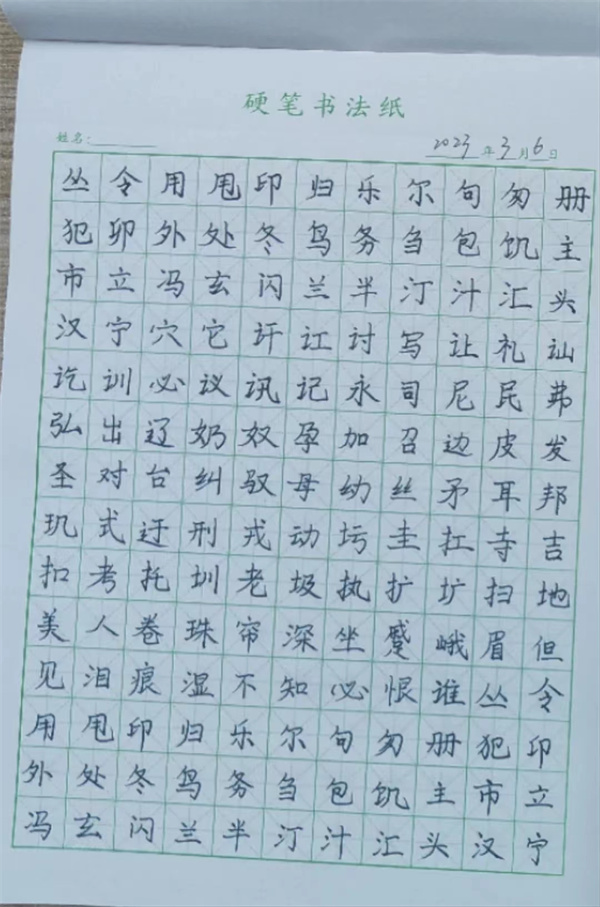 硬笔书法纸
姓名: 2023年3月6日
丛令用甩印归乐尔句匆册
犯卯外处冬鸟务刍包饥主
市立冯玄闪兰半汀汁汇头
汉宁穴它讦讧讨写让礼讪
讫训必议讯记永司尼民弗
弘出辽奶奴孕加召边皮发
圣对台纠驭母幼丝矛耳邦
玑式迂刑戎动圬圭扛寺吉
扣考托圳老圾执扩圹扫地
美人卷珠帘深坐蹙峨眉但
见泪痕湿不知必恨谁丛令
用甩印归乐尔句匆册犯印
外处冬鸟务刍包饥主市立
冯玄闪兰半汀汁汇头汉宁